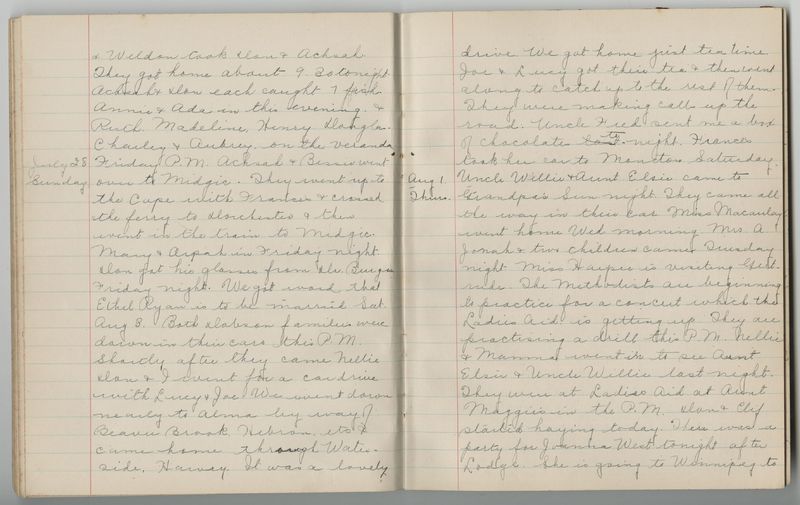 & Weldon took Don & Achsah.
They got home about 9.30 tonight
Achsah & Don each caught 7 fish
Annie & Ada in this evening &
Ruth, Madeline, Henry Douglas.
Charley & Aubrey. on the veranda
July 28 Friday P.M. Achsah & Bessie went
Sunday over to Midgic. They went up to
the Cape with Frances & crossed
the ferry to Dorchester & then
went in the train to Midgic.
Mary & Arpah in Friday night.
Don got his glasses from Dr. Burgess
Friday night. We got word that
Ethel Ryan is to be married Sat.
Aug 3. Both Dobson families were
down in their cars this P.M.
Shortly after they came Nellie
Don & I went for a car drive
with Lucy & Joe. We went down
nearly to Alma by way of
Beaver Brook, Hebron, etc &
came home through Water-
side, Harvey. It was a lovely
drive We got home just tea time
Joe & Lucy got their tea & then went
along to catch up to the rest of them.
They were making calls up the
road. Uncle Fred sent me a box
of chocolate to-night. Frances
took her car to Moncton Saturday.
Aug 1. Uncle Willie & Aunt Elsie came to
Thurs. Grandpa's Sun night They came all
the way in their car Miss Macaulay
went home Wed morning Mrs A
Jonah & two children came Tuesday
night Miss Harper is visiting Gert-
rude. The Methodists are beginning
to practice for a concert which the
Ladies Aid is getting up. They are
practising a drill this P.M. Nellie
& Mamma went in to see Aunt
Elsie & Uncle Willie last night.
They were at Ladies Aid at Aunt
Maggie's in the P.M. Don & Clif
started haying today. There was a
party for Joanna West tonight after
Lodge. She is going to Winnipeg to